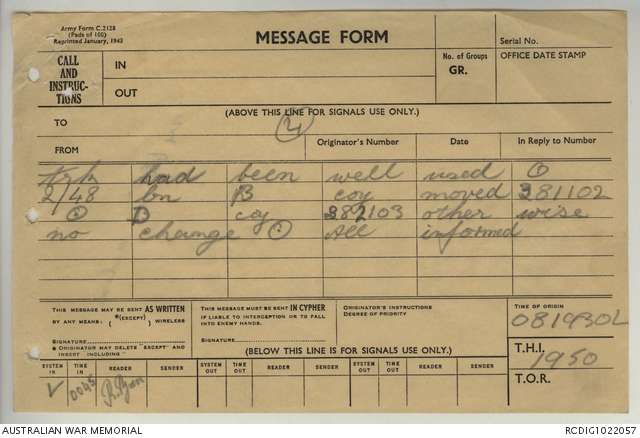 Army Form C.2128
(Pads of 100)
Reprinted January, 1943
MESSAGE FORM
Serial No.
CALL AND INSTRUC- TIONS
IN
OUT
No. of Groups
GR.
OFFICE DATE STAMP
(ABOVE THIS LINE FOR SIGNALS USE ONLY.)
TO
(4)
FROM
Originator's Number
Date
In Reply to Number
had been well used ⊙
2/48 bn B coy moved 381102
⊙ D coy 382103 other wise
no change ⊙ All informed
THIS MESSAGE MAY BE SENT AS WRITTEN
BY ANY MEANS. *(EXCEPT) WIRELESS
SIGNATURE
* ORIGINATOR MAY DELETE "EXCEPT" AND
INSERT INCLUDING"
THIS MESSAGE MUST BE SENT IN CYPHER
IF LIABLE TO INTERCEPTION OR TO FALL
INTO ENEMY HANDS.
SIGNATURE
ORIGINATOR'S INSTRUCTIONS
DEGREE OF PRIORITY
TIME OF ORIGIN
081930L
(BELOW THIS LINE IS FOR SIGNALS USE ONLY.)
T.H.I.
1950
T.O.R.
SYSTEM IN
TIME IN
READER
SENDER
SYSTEM OUT
TIME OUT
READER
SENDER
SYSTEM OUT
TIME OUT
READER
SENDER
✓ 0045
AUSTRALIAN WAR MEMORIAL
RCDIG1022057